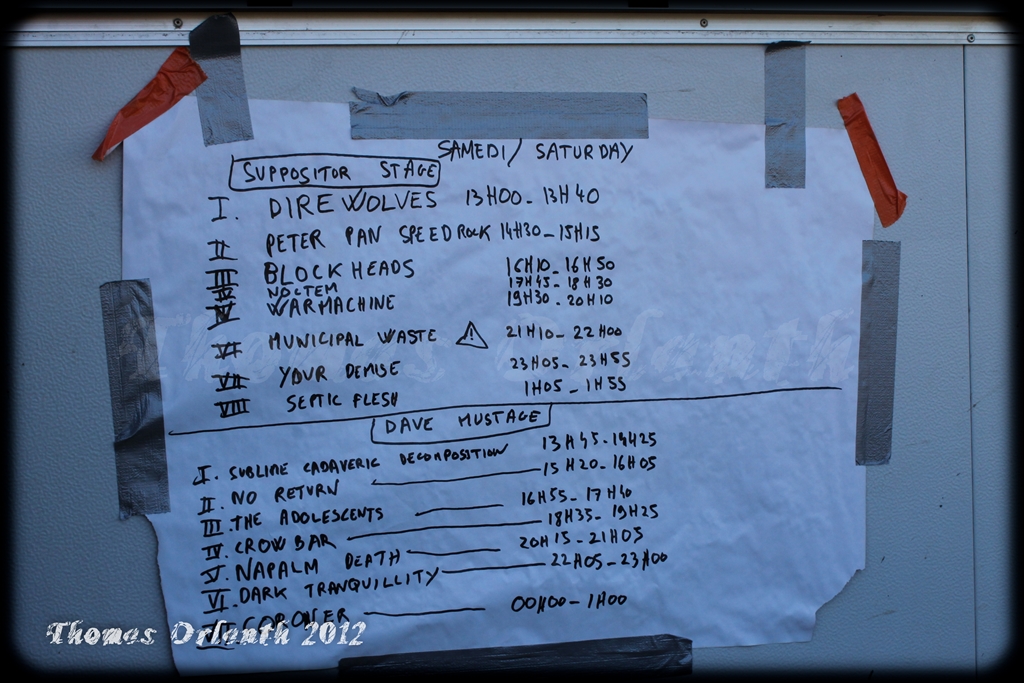 SAMEDI/ SATURDAY
SUPPOSITOR STAGE
I. DIREWOLVES 13H00-13H40
II PETER PAN SPEEDROCK 14H30-15H15
III BLOCKHEADS 16H10-16H50
IV NOCTEM 17H45-18H30
V WARMACHINE 19H30-20H10
VI MUNICIPAL WASTE ⚠ 21H10-22H00
VII YOUR DEMISE 23H05-23H55
VIII SEPTIC FLESH 1H05-1H55
DAVE MUSTAGE
I. SUBLIME CADAVERIC DECOMPOSITION 13H45-14H25
II. NO RETURN 15H20-16H05
III. THE ADOLESCENTS 16H55-17H40
IV. CROWBAR 18H35-19H25
V. NAPALM DEATH 20H15-21H05
VI. DARK TRANQUILLITY 22H05-23H00
VII CORONER 00H00-1H00
Thomas Orlanth
Thomas Orlanth 2012